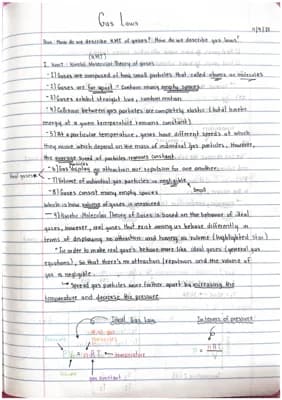 Gas Laws
Aim: How do we describe KMT of gases? How do we describe gas laws?
(KMT)
I. Kinetic Molecular Theory of gases
-1) Gases are composed of tiny small particles that called atoms or molecules
-2) Gases are far apart - Contain many empty spaces
-3) Gases exhibit straight line, random motion
-4) Collisions between gas particles are completely elastic (total kinetic
energy at a given temperature remains constant)
-5) At a particular temperature, gases have different speeds at which
they move which depend on the mass of individual gas particles, However,
the average speed of particles remains constant.
particles
-6) Gas display no attraction nor repulsion for one another.
Ideal gases
-7) Volume of individual gas particles is negligible
small
-8) Gases consist many empty spaces
which is how volume of gases is measured
-9) Kinetic Molecular Theory of Gases is based on the behavior of ideal
gases, however, real gases that exist among us behave differently in
terms of displaying no attraction and having no volume (highlighted star)
*In order to make real gases behave more like ideal gases (general gas
equations), so that there's no attraction/repulsion and the volume of
gas is negligible
Spread gas particles more further apart by increasing the
temperature and decrease the pressure
Ideal Gas Law
In terms of pressure
Pressure
PV = nRT
temperature
Volume
gas constant
P = nRT
V